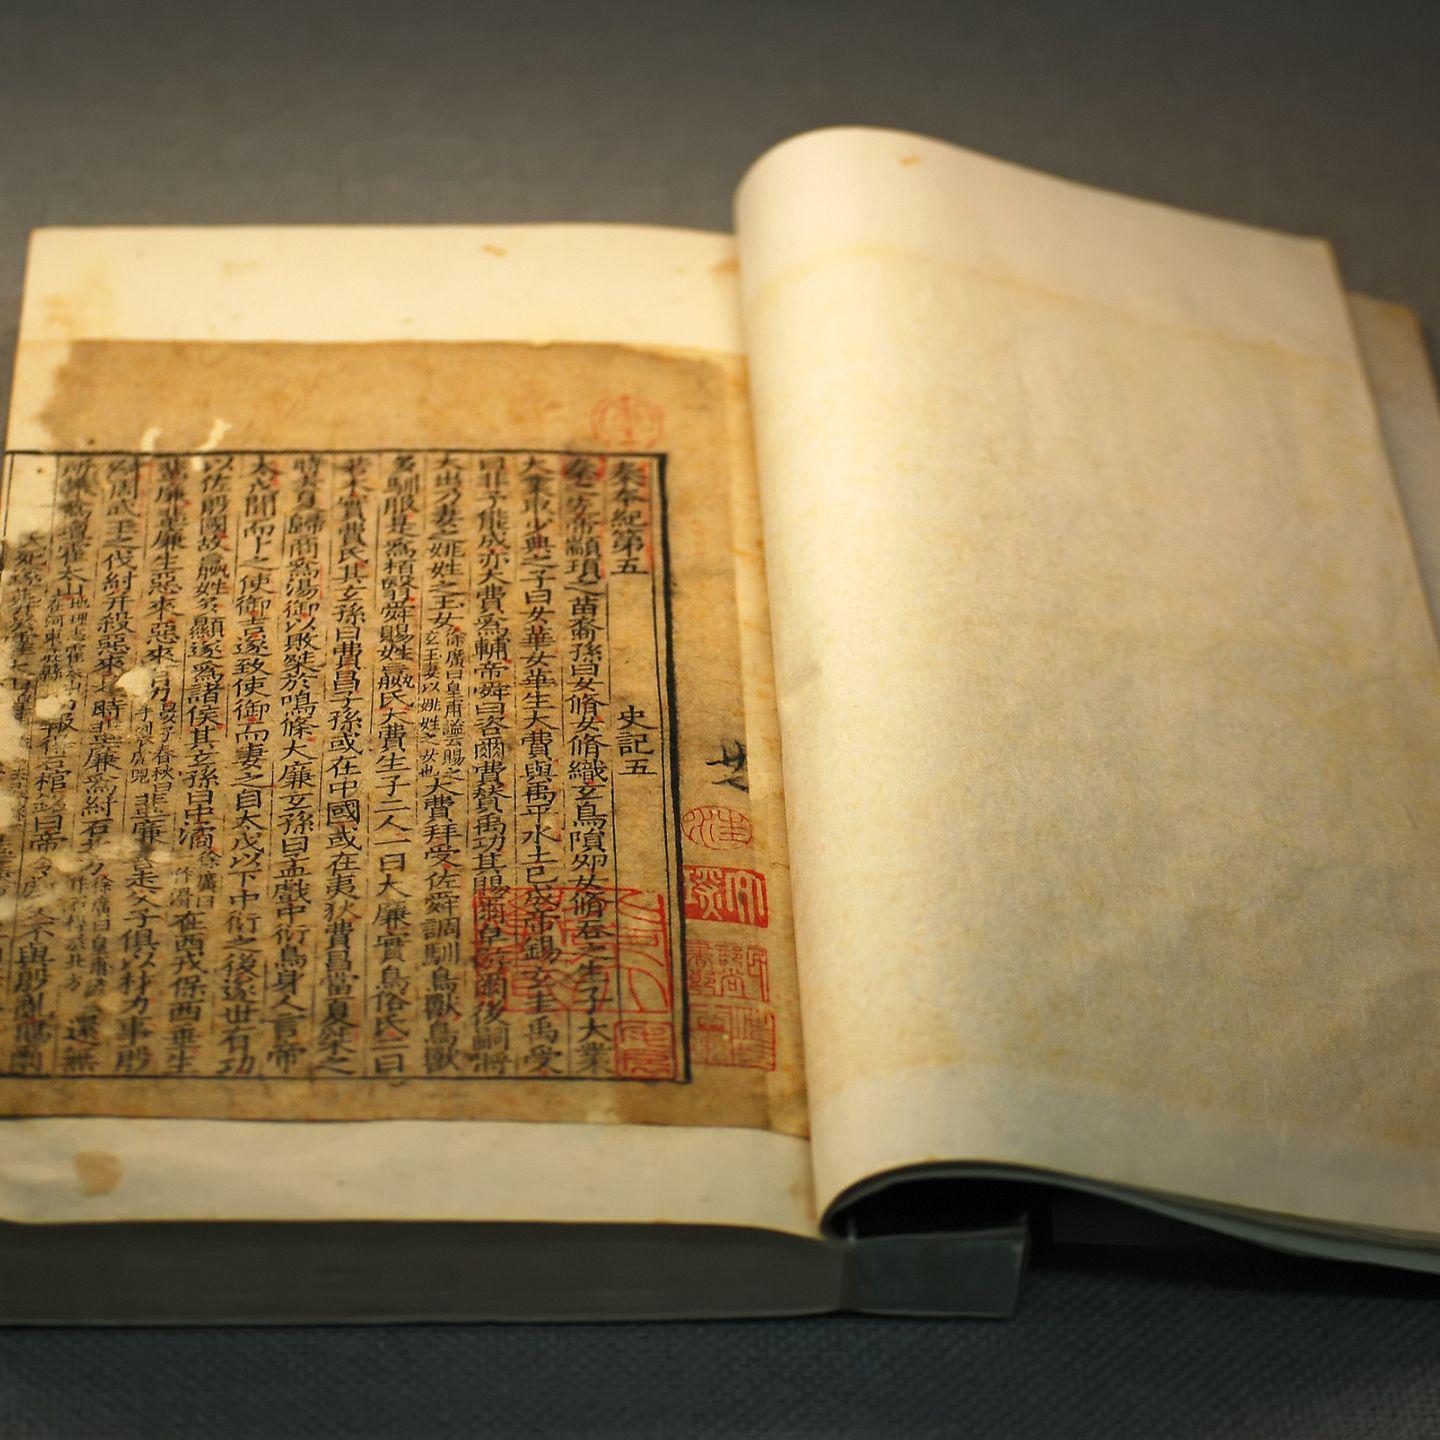 秦夲紀第五 史記五
秦之先帝顓頊之苗裔孫曰女脩女脩織玄鳥隕卵女脩吞之生子大業
大業取少典之子曰女華女華生大費與禹平水土已成帝錫玄圭禹受
曰非予能成亦大費爲輔帝舜曰咨爾費贊禹功其賜爾皁游爾後嗣將
大出乃妻之姚姓之玉女徐廣曰皇甫謐云賜之玄玉妻以姚姓之女也大費拜受佐舜調馴鳥獸鳥獸
多馴服是爲栢翳舜賜姓嬴氏大費生子二人一曰大廉實鳥俗氏二曰
若木實費氏其玄孫曰費昌子孫或在中國或在夷狄費昌當夏桀之
時去夏歸商爲湯御以敗桀於鳴條大廉玄孫曰孟戲中衍鳥身人言帝
太戊聞而卜之使御吉遂致使御而妻之自太戊以下中衍之後遂世有功
以佐殷國故嬴姓多顯遂爲諸侯其玄孫曰中潏徐廣曰作滑在西戎保西垂生
蜚廉蜚廉生惡來惡來有力晏子春秋曰手裂虎兕蜚廉善走父子俱以材力事殷
紂周武王之伐紂并殺惡來是時蜚廉爲紂石北方徐廣曰皇甫謐作石椁於北方還無
所報爲壇霍太山地理志霍太山在河東彘縣報得石棺銘曰帝令處父不與殷亂賜爾